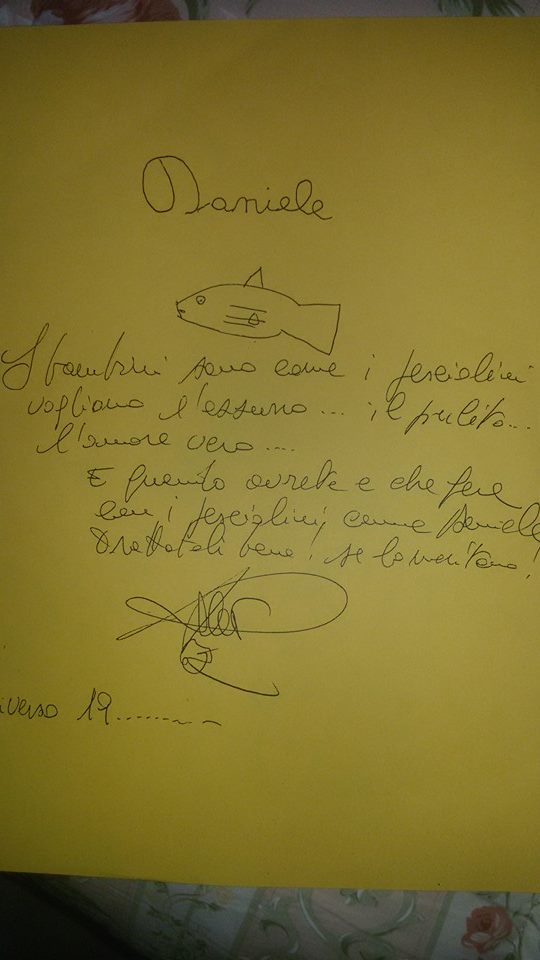 Daniele
I bambini sono come i pesciolini
vogliono l'azzurro... il pulito...
l'amore vero....
E quanto avrete e che fare
con i pesciolini, come Daniele
Trattateli bene! se lo meritano!
iverso 19.........